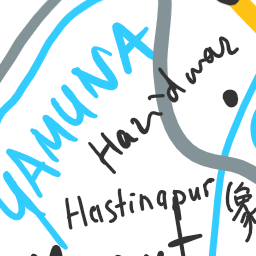 YAMUNA
Haridwar
Hastinapur (象